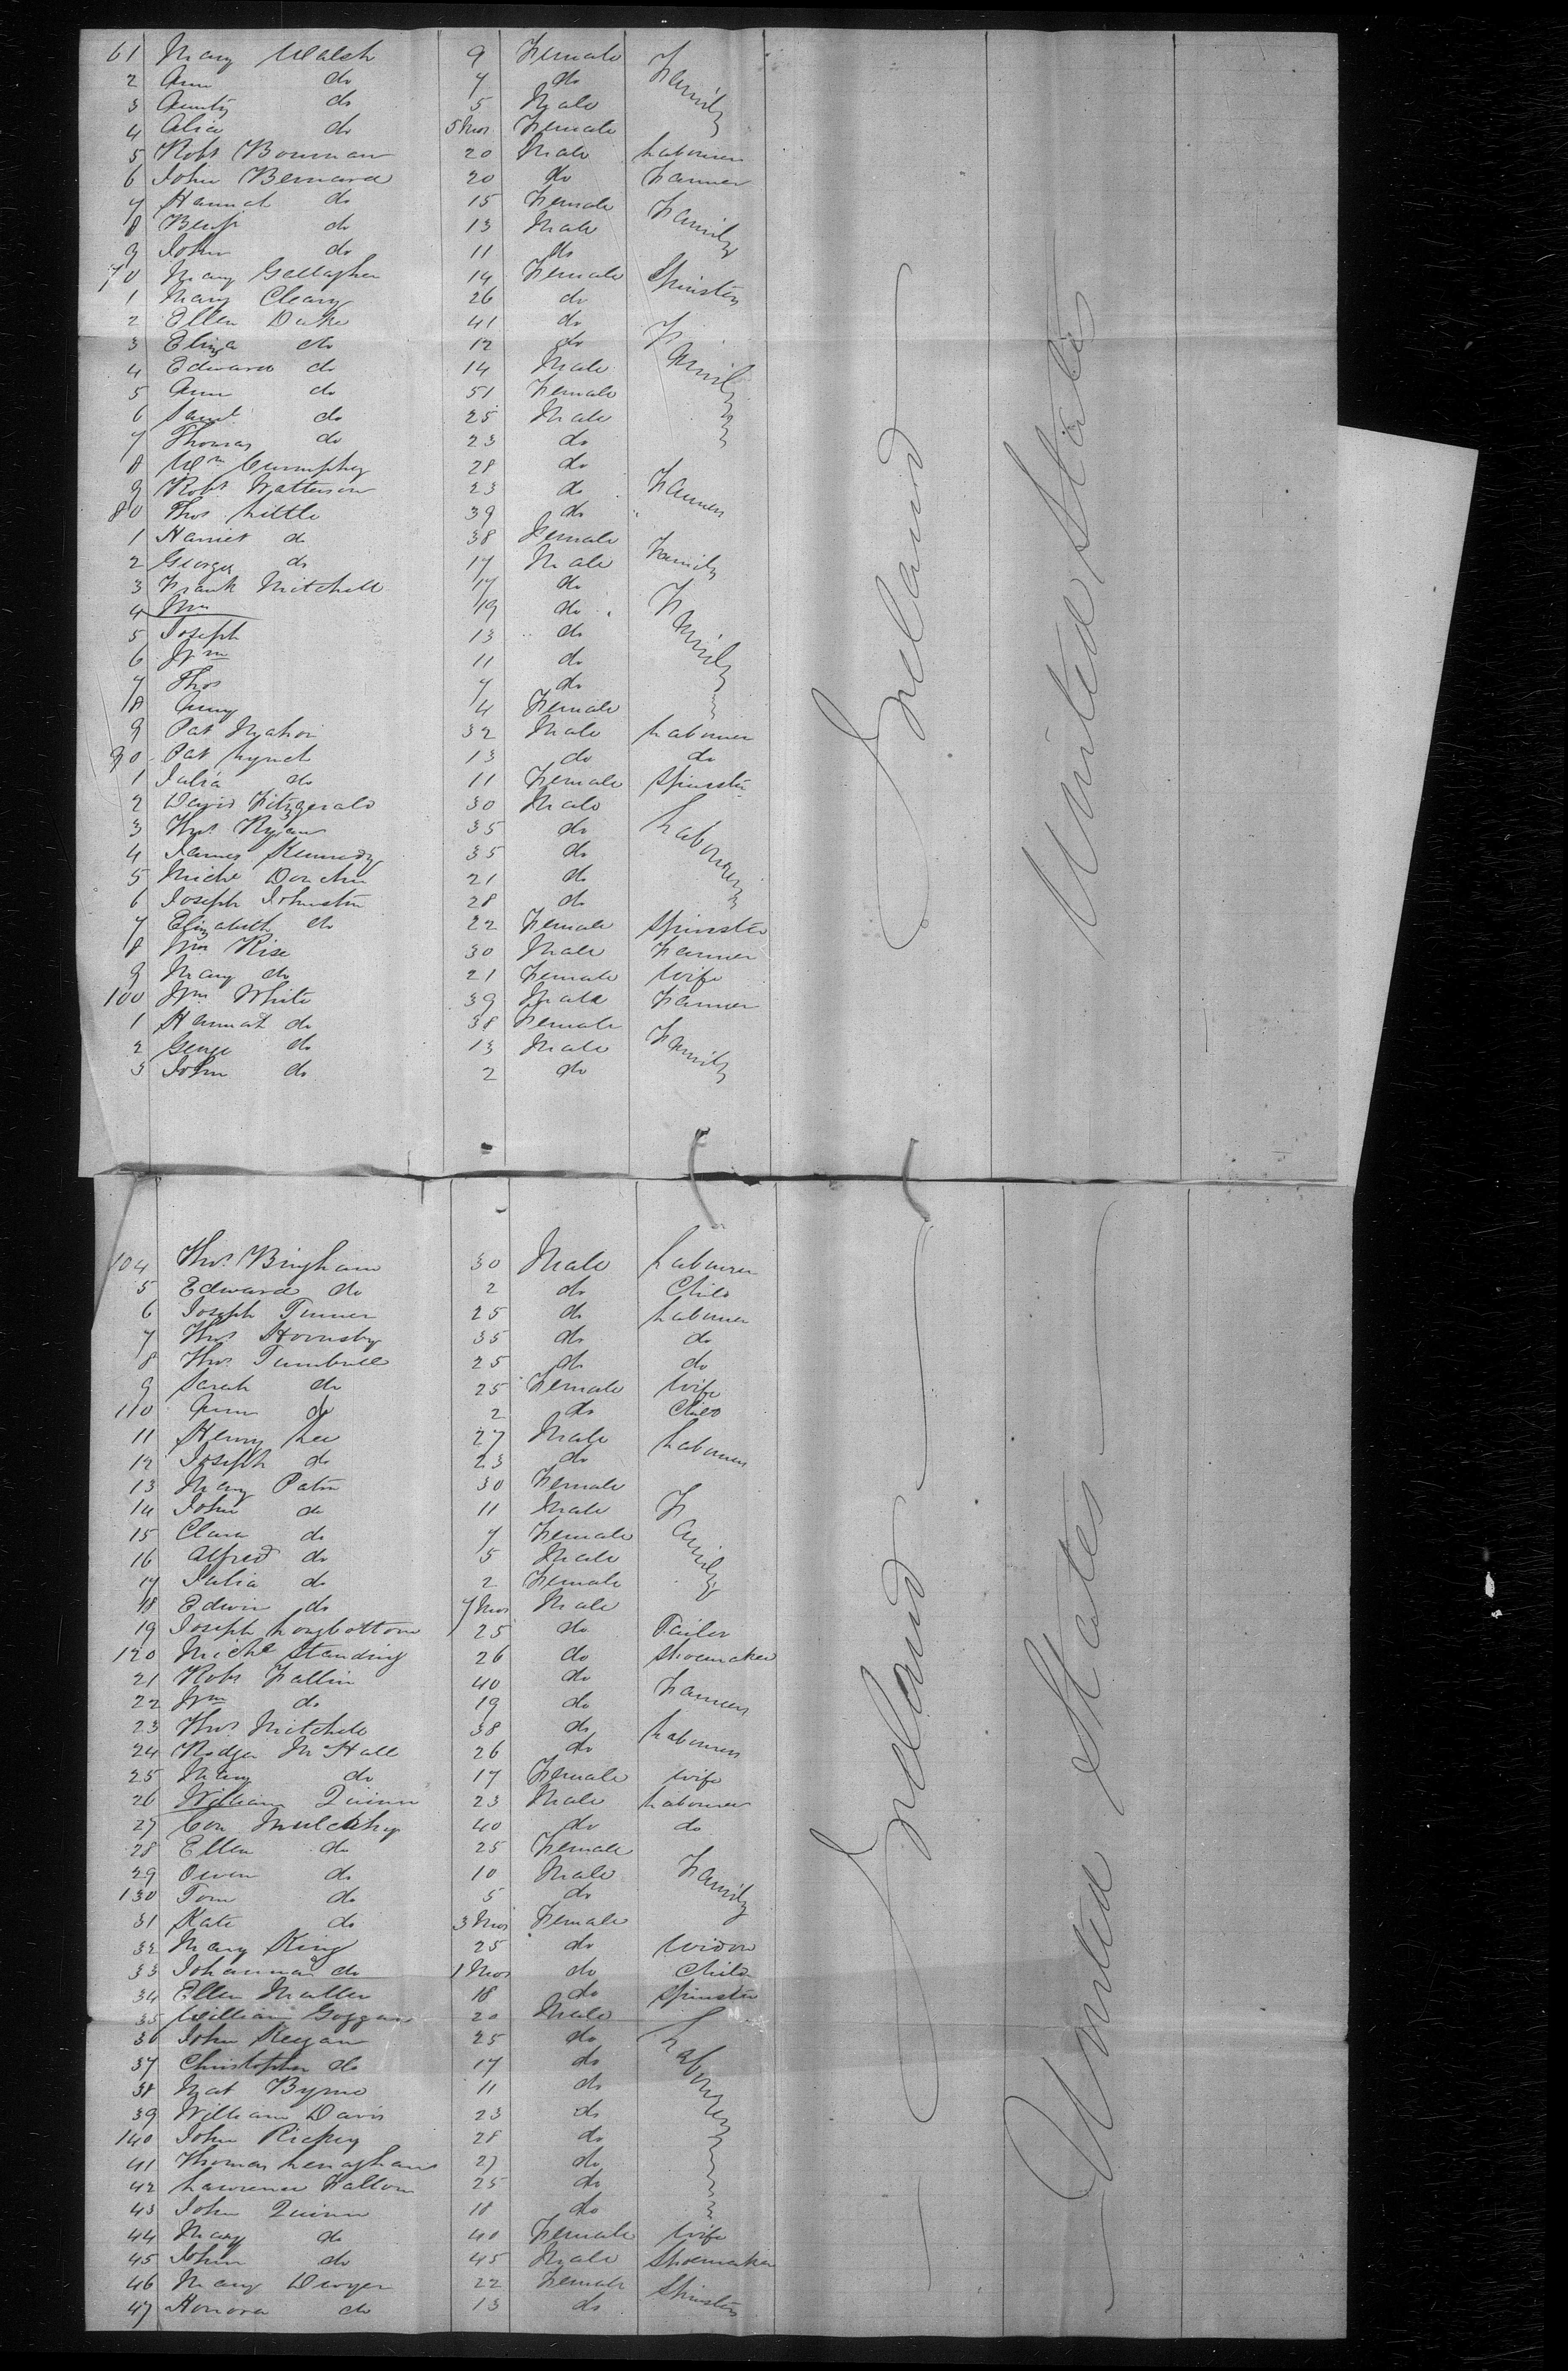 61 Mary Walsh 9 Female Family
2 Ann do 7 do
3 do 5 Male
4 Alice do 5 Mos Female
5 Robt Bowman 20 Male Labourer
6 John Bernard 20 do Farmer
7 Hannah do 15 Female Family
8 Benj do 13 Male
9 John do 11 do
70 Mary Gallagher 14 Female Spinsters
1 Mary Cleary 26 do
2 Ellen Duke 41 do Family
3 Eliza do 12 do
4 Edward do 14 Male
5 Ann do 51 Female
6 Saml do 25 Male
7 Thomas do 23 do
8 Wm 28 do
9 Robt Watterson 23 do Farmers
80 Thos Little 39 do
1 Harriet do 38 Female Family
2 George do 17 Male
3 Frank Mitchell 17 do
4 19 do Family
5 Joseph 13 do
6 Wm 11 do
7 Thos 7 do
8 4 Female
9 Pat Mahon 32 Male Labourer
90 Pat Lynch 13 do do
1 Julia do 11 Female Spinster
2 David Fitzgerald 30 Male Labourers
3 Thos Ryan 35 do
4 James Kennedy 35 do
5 Michl 21 do
6 Joseph Johnston 28 do
7 Elizabeth do 22 Female Spinster
8 Wm Rise 30 Male Farmer
9 Mary do 21 Female Wife
100 Wm White 39 Male Farmer
1 Hannah do 38 Female Family
2 George do 13 Male
3 John do 2 do
Ireland
United States
104 Thos Bingham 30 Male Labourer
5 Edward do 2 do Child
6 Joseph Turner 25 do Labourer
7 Thos Hornsby 35 do do
8 Thos Turnbull 25 do do
9 Sarah do 25 Female Wife
110 Ann do 2 do Child
11 Henry Lee 27 Male Labourers
12 Joseph do 23 do
13 Mary 30 Female Family
14 John do 11 Male
15 Clara do 7 Female
16 Alfred do 5 Male
17 Julia do 2 Female
18 Edwin do 7 Mos Male
19 Joseph Longbottom 25 do Tailor
120 Michl Standing 26 do Shoemaker
21 Robt Fallin 40 do Farmers
22 Wm do 19 do
23 Thos Mitchell 38 do Labourers
24 Rodger McHall 26 do
25 Mary do 17 Female Wife
26 William Quinn 23 Male Labourer
27 Con Mulcahy 40 do do
28 Ellen do 25 Female Family
29 Owen do 10 Male
130 Tom do 5 do
31 Kate do 3 Mos Female
32 Mary King 25 do Widow
33 Johanna do 1 Mos do Child
34 Ellen 18 do Spinster
35 William Goggan 20 Male Labourers
36 John Keegan 25 do
37 Christopher do 17 do
38 Mat Byrne 11 do
39 William Davis 23 do
140 John 28 do
41 Thomas Lenaghan 27 do
42 Lawrence Fallon 25 do
43 John Quinn 18 do
44 Mary do 40 Female Wife
45 John do 45 Male Shoemaker
46 Mary Dwyer 22 Female Spinsters
47 Honora do 13 do
Ireland
United States